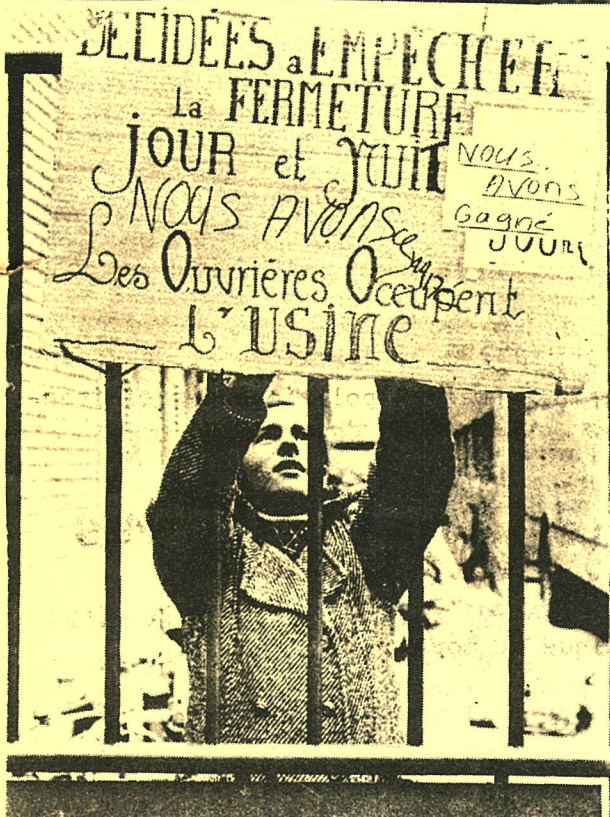 DECIDÉES a EMPÊCHER
La FERMETURE
jOUR et NUIT
NOUS AVONS
Les Ouvriéres Occupent
L'USINE
NOUS
AVONS
Gagné